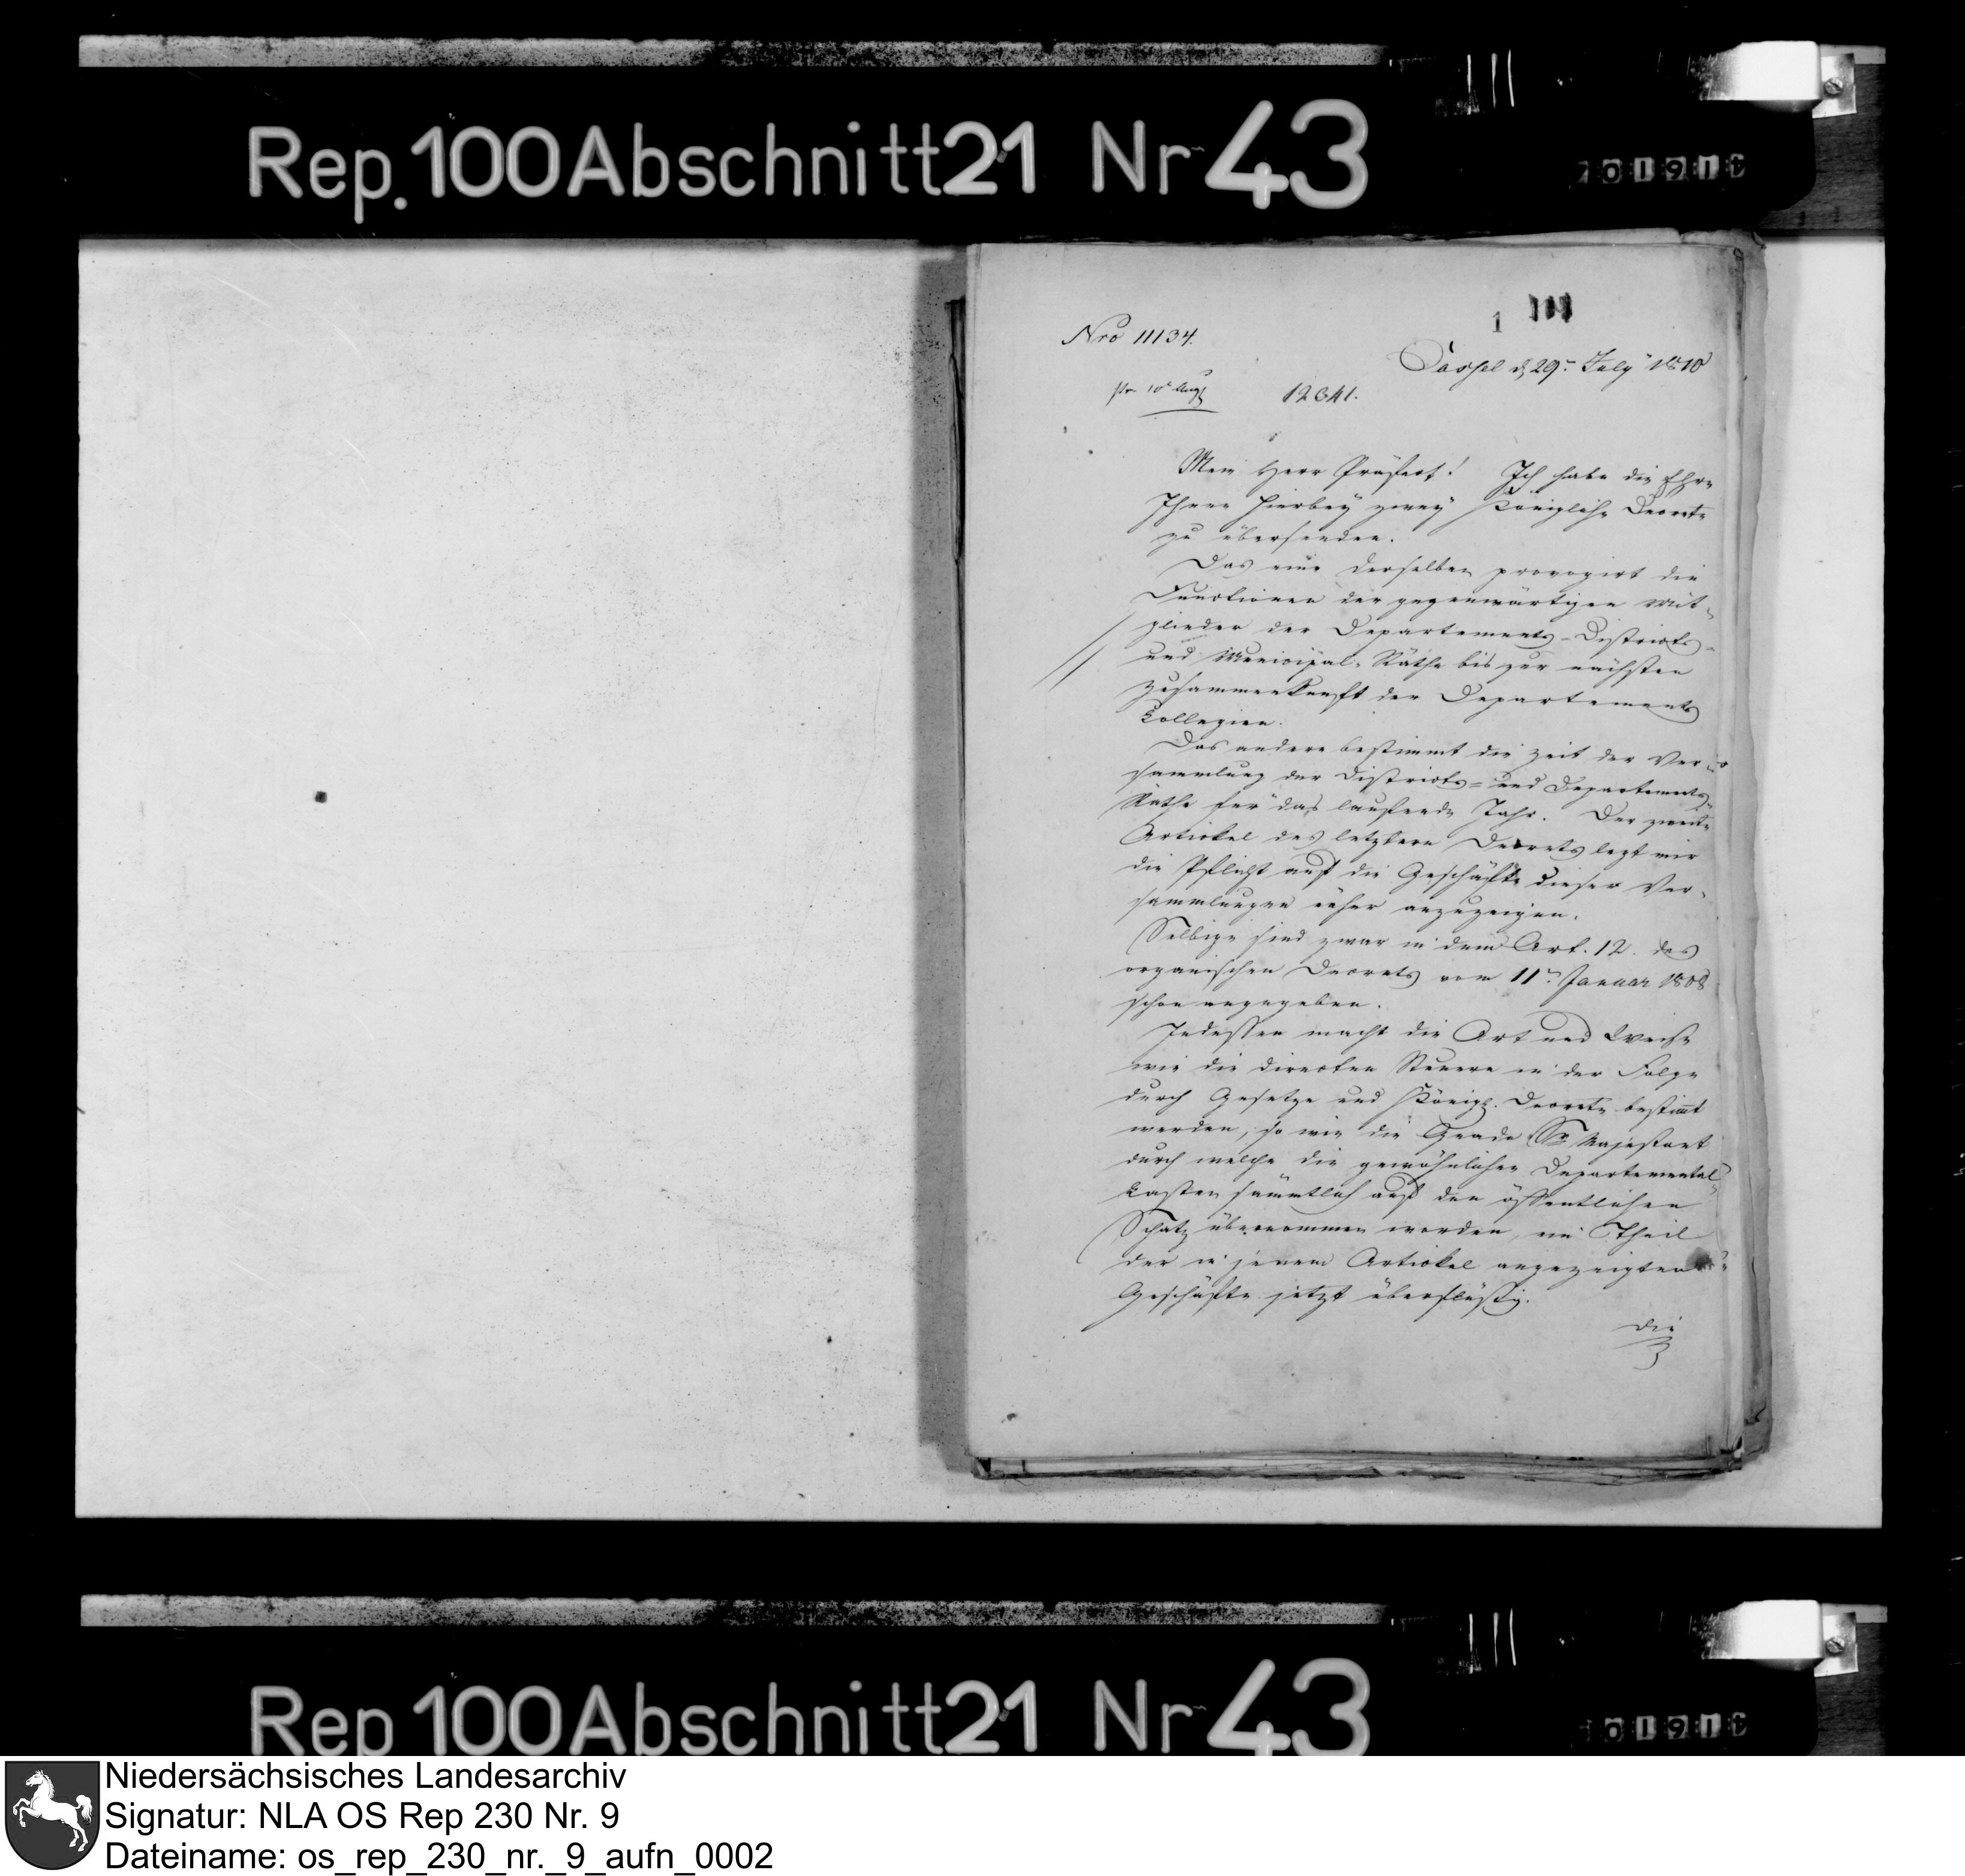 Rep. 100 Abschnitt 21 Nr 43
1
Nro 11134.
Cassel d 29n July 1810
pr 10t Aug 12641.
Mein Herr Präfect! Ich habe die Ehre
Ihnen hierbey zwey Königliche Decrete
zu übersenden.
Das eine derselben prorogirt die
Functionen der gegenwärtigen Mit-
glieder der Departements-Districts-
und Municipal-Räthe bis zur nächsten
Zusammenkunft der Departements
Collegien.
Das andere bestimmt die Zeit der Ver-
sammlung der Districts- und Departements
Räthe für das laufende Jahr. Der zweite
Artickel des letztern Decrets legt mir
die Pflicht auf die Geschäfte dieser Ver-
sammlungen näher anzuzeigen.
Selbige sind zwar in dem Art. 12. des
organischen Decrets vom 11n Januar 1808
schon angegeben.
Indessen macht die Art und Weise
wie die directen Steuern in der Folge
durch Gesetze und Königl. Decrete bestimmt
werden, so wie die Gnade Sr Majestaet
durch welche die gewöhnlichen Departemental-
Lasten sämmtlich auf den öffentlichen
Schatz übernommen worden, ein Theil
der in jenem Artickel angezeigten
Geschäfte jetzt überflüßig.
Die
Rep 100 Abschnitt 21 Nr 43
Niedersächsisches Landesarchiv
Signatur: NLA OS Rep 230 Nr. 9
Dateiname: os_rep_230_nr._9_aufn_0002